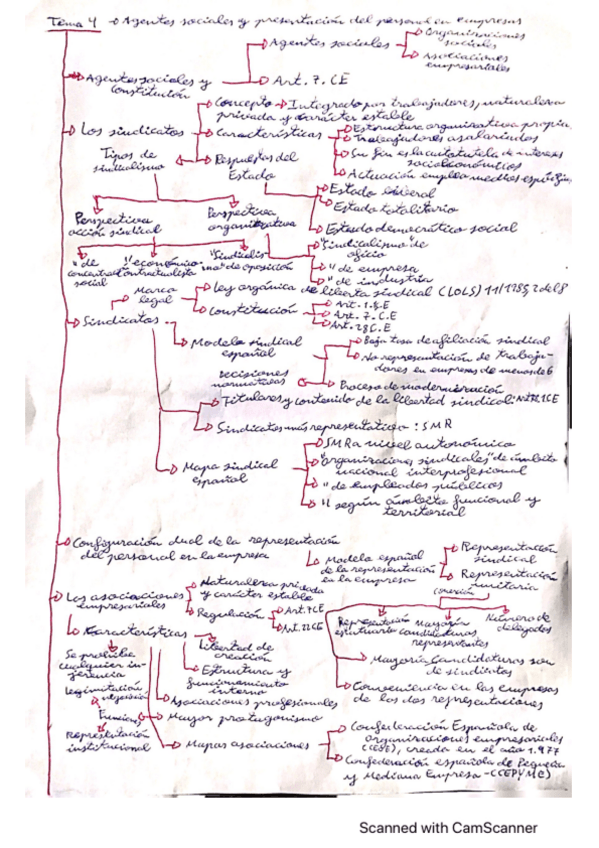 Tema 4 → Agentes sociales y presentación del personal en empresas
Agentes sociales y
Constitución
Agentes sociales
Organizaciones
sociales
Asociaciones
empresariales
Art. 7. CE
Los sindicatos
Concepto → Integrado por trabajadores, naturaleza
privada y carácter estable
Características
Estructura organizativa propia
Trabajadores asalariados
Su fin es la autotutela de intereses
socioeconómicos
Actuación emplea medios
Respuestas del
Estado
Estado liberal
Estado totalitario
Estado democrático social
Tipos de
sindicalismo
Perspectiva
acción sindical
Perspectiva
organizativa
"de
concertación
social
" económico-
contractualista
"Sindicalis-
mo" de oposición
"Sindicalismo" de
oficio
" de empresa
" de industria
Sindicatos
Marco
legal
Ley orgánica de liberta sindical (LOLS) 11/1985, 2 del 8
Constitución
Art. 7. C.E
Art. 28 C.E
Modelo sindical
español
Baja tasa de afiliación sindical
No representación de trabaja-
dores en empresas de menos de 6
Proceso de modernización
Decisiones
normativas
Titulares y contenido de la libertad sindical:
Sindicatos más representativo: SMR
Mapa sindical
español
SMR a nivel autonómico
"organizaciones sindicales" de ámbito
nacional interprofesional
" de empleados públicos
" según ámbito funcional y
territorial
Configuración dual de la representación
del personal en la empresa
Modelo español
de la representación
en la empresa
Representación
sindical
Representación
unitaria
conexión
Representación
estatuario
mayoría
candidaturas
representantes
Número de
delegados
Mayoría candidaturas son
de sindicatos
Convenciencia en las empresas
de las dos representaciones
Los asociaciones
empresariales
Naturaleza privada
y carácter estable
Regulación
Art. 7 CE
Art. 22 CE
Características
Se prohíbe
cualquier in-
gerencia
Libertad de
creación
Estructura y
funcionamiento
interno
Legitimación
Funciones
Representación
institucional
Asociaciones profesionales
Mayor protagonismo
Mapas asociaciones
Confederación Española de
organizaciones empresariales
(CEOE), creada en el año 1.977
Confederación española de Pequeña
y Mediana Empresa - (CEPYME)
Scanned with CamScanner